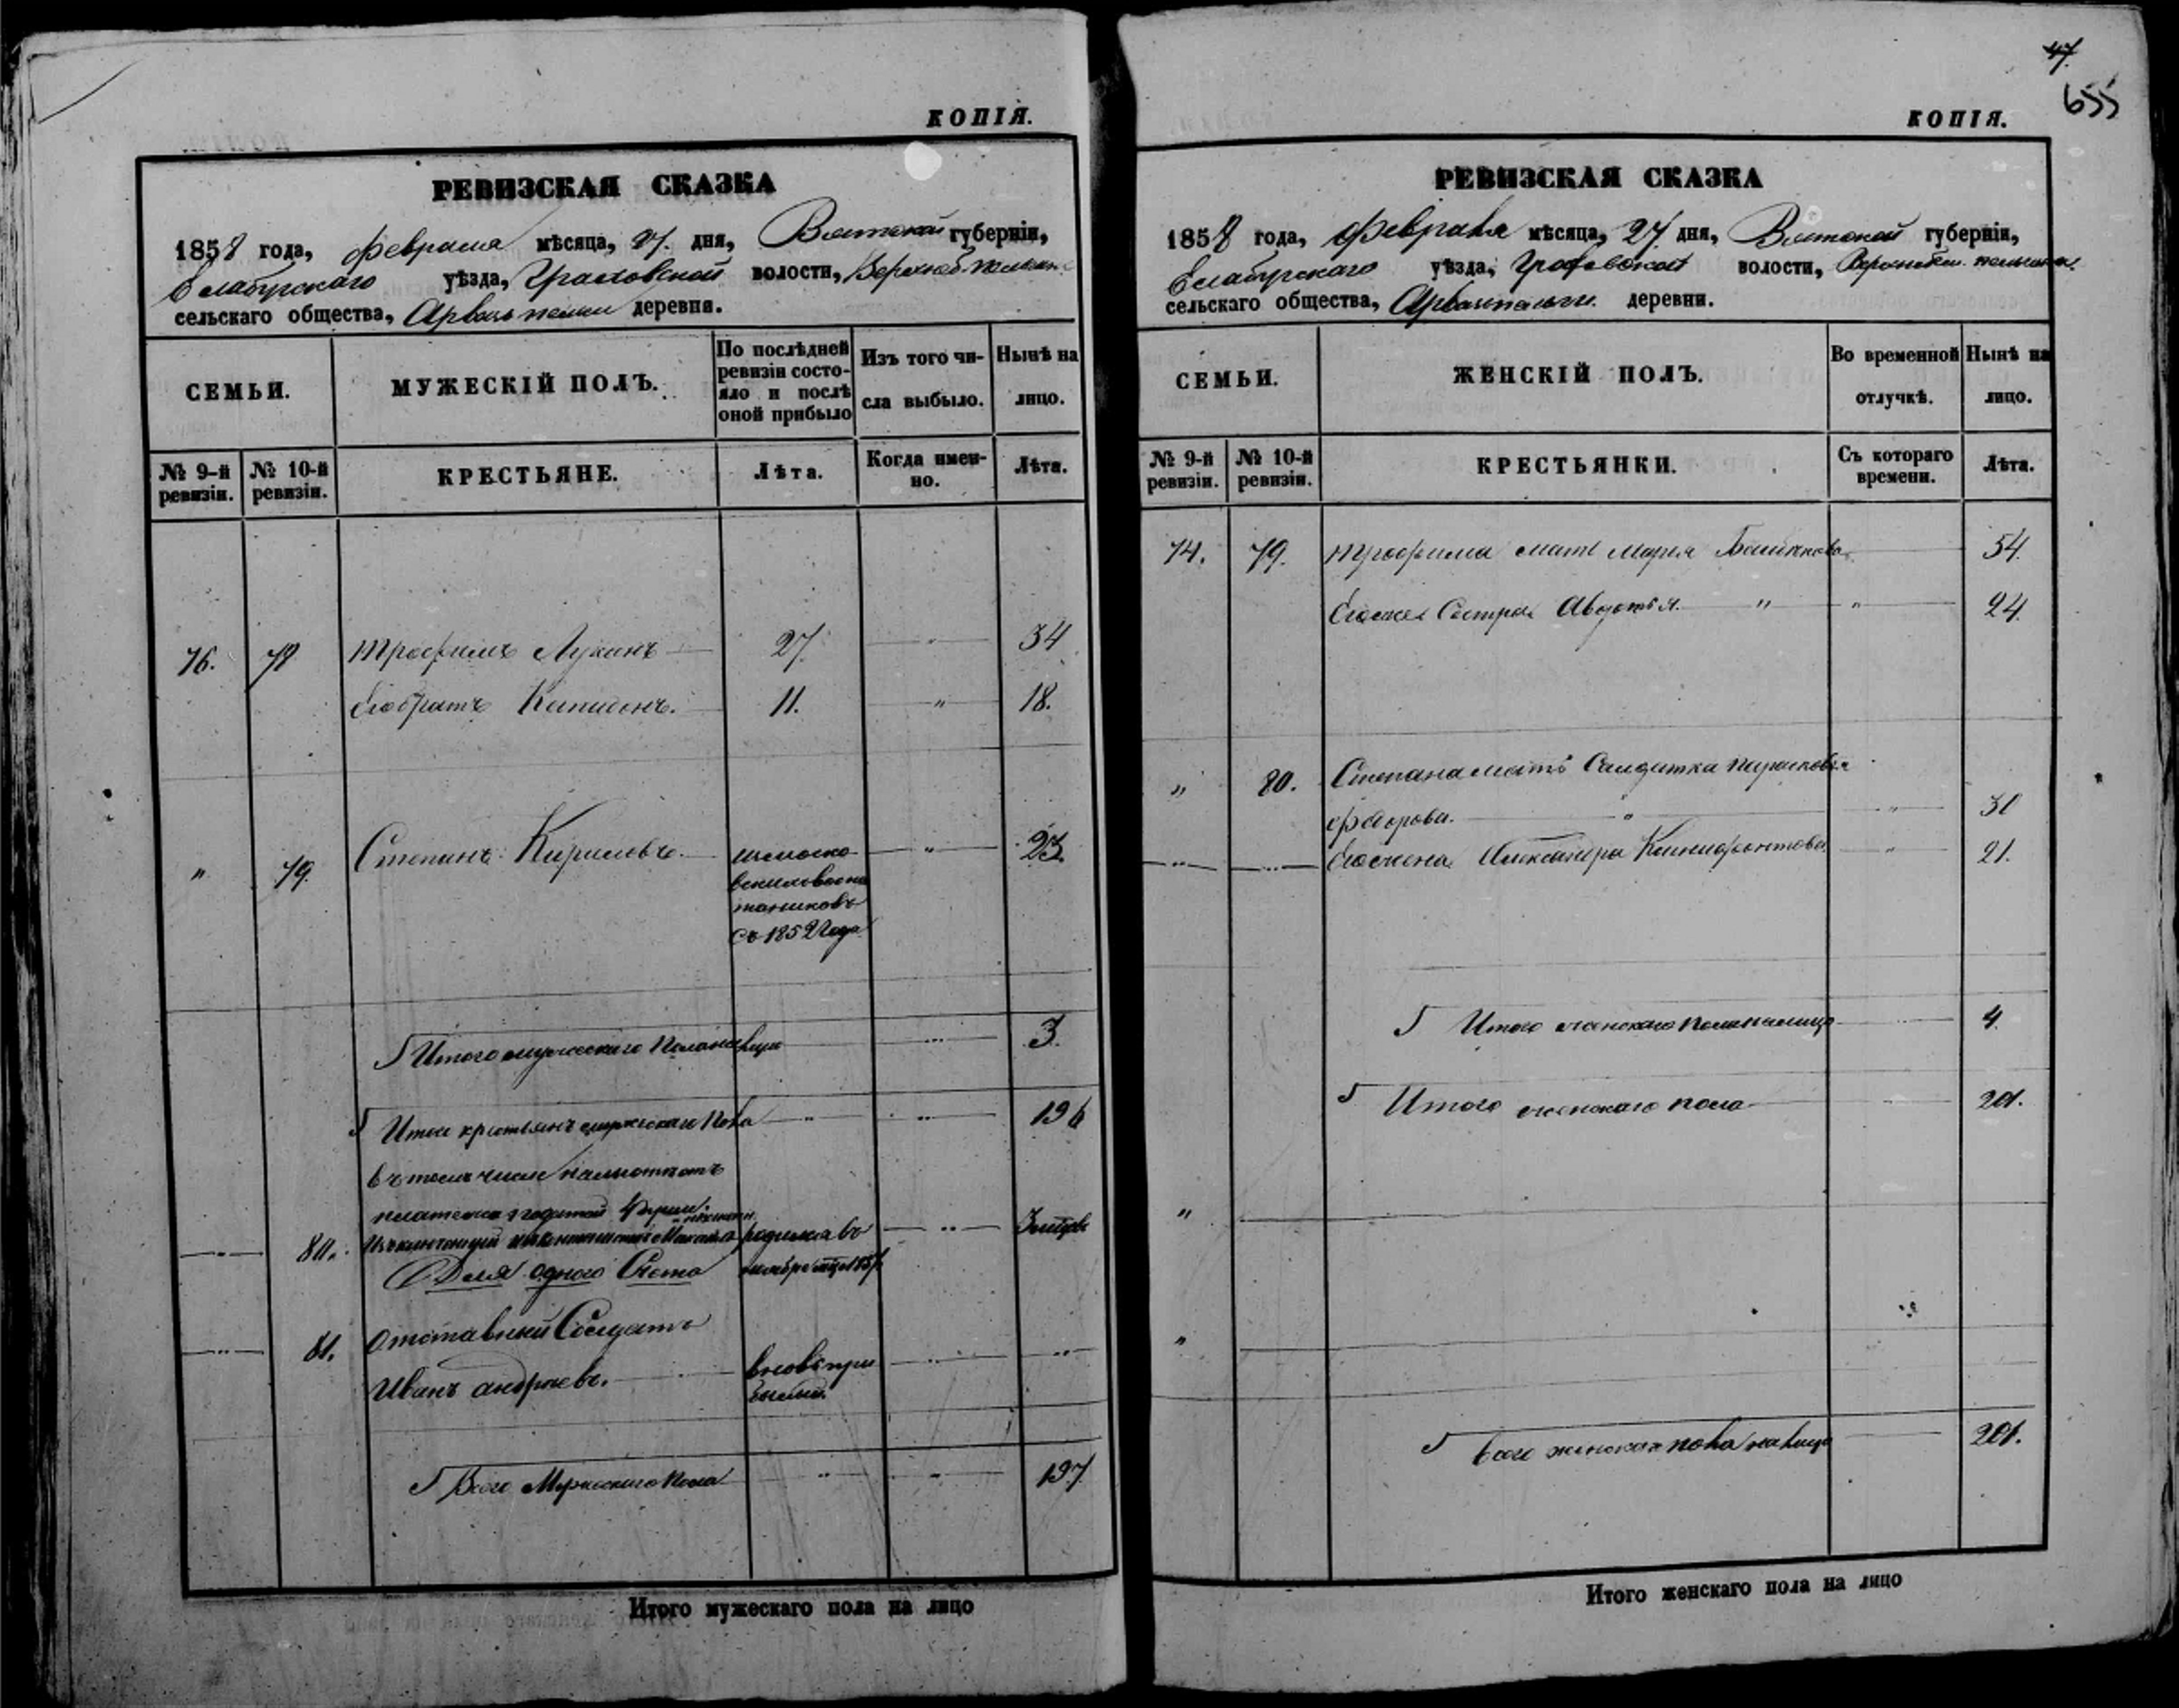 КОПІЯ.
РЕВИЗСКАЯ СКАЗКА
1858 года, февраля мѣсяца, 27. дня, Вятской губерніи,
Елабужскаго уѣзда, Граховской волости,
сельскаго общества, деревни.
СЕМЬИ.
МУЖЕСКІЙ ПОЛЪ.
По послѣдней
ревизіи состо-
яло и послѣ
оной прибыло
Изъ того чи-
сла выбыло.
Нынѣ на
лицо.
№ 9-й
ревизіи.
№ 10-й
ревизіи.
КРЕСТЬЯНЕ.
Лѣта.
Когда имен-
но.
Лѣта.
76. 78 Трофимъ Лукинъ 27. " 34
Его братъ 11. " 18.
" 79. Степанъ Кириловъ " 23.
съ 1852 года
Итого мужескаго пола на лицо 3.
Итого крестьянъ мужескаго пола " " 196
въ томъ числѣ
80. родился въ
Для одного счета
81. Отставный Солдатъ
Иванъ Андреевъ. вновь при
былый.
Всего Мужескаго пола " " 197
Итого мужескаго пола на лицо
47.
655
КОПІЯ.
РЕВИЗСКАЯ СКАЗКА
1858 года, февраля мѣсяца, 27 дня, Вятской губерніи,
Елабужскаго уѣзда, Граховской волости,
сельскаго общества, деревни.
СЕМЬИ.
ЖЕНСКІЙ ПОЛЪ.
Во временной
отлучкѣ.
Нынѣ на
лицо.
№ 9-й
ревизіи.
№ 10-й
ревизіи.
КРЕСТЬЯНКИ.
Съ котораго
времени.
Лѣта.
74. 79. Трофима мать Марья 54.
Его же Сестра Авдотья. " " 24.
" 80. Степана мать Салдатка
Федорова. " "
Его жена Александра " 21.
Итого женскаго пола на лицо 4.
Итого женскаго пола 201.
"
"
Всего женскаго пола на лицо 201.
Итого женскаго пола на лицо